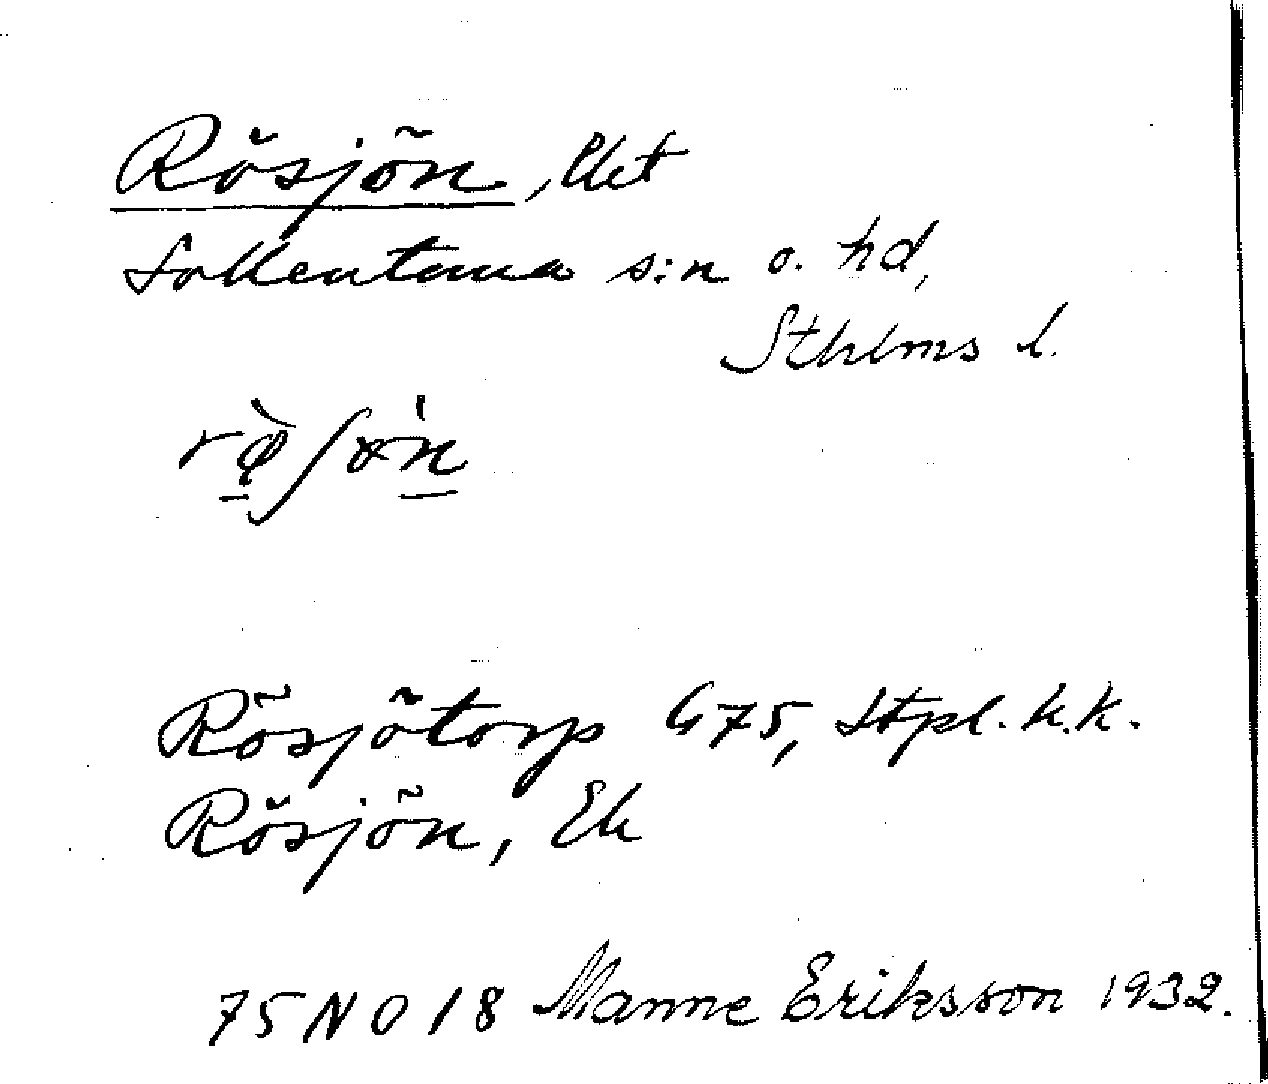 Rösjön, lht
Sollentuna s:n o. hd,
Sthlms l.
Rösjötorp G 75, Stpl. k.k.
Rösjön, Ek
75 NO 18 Manne Eriksson 1932.